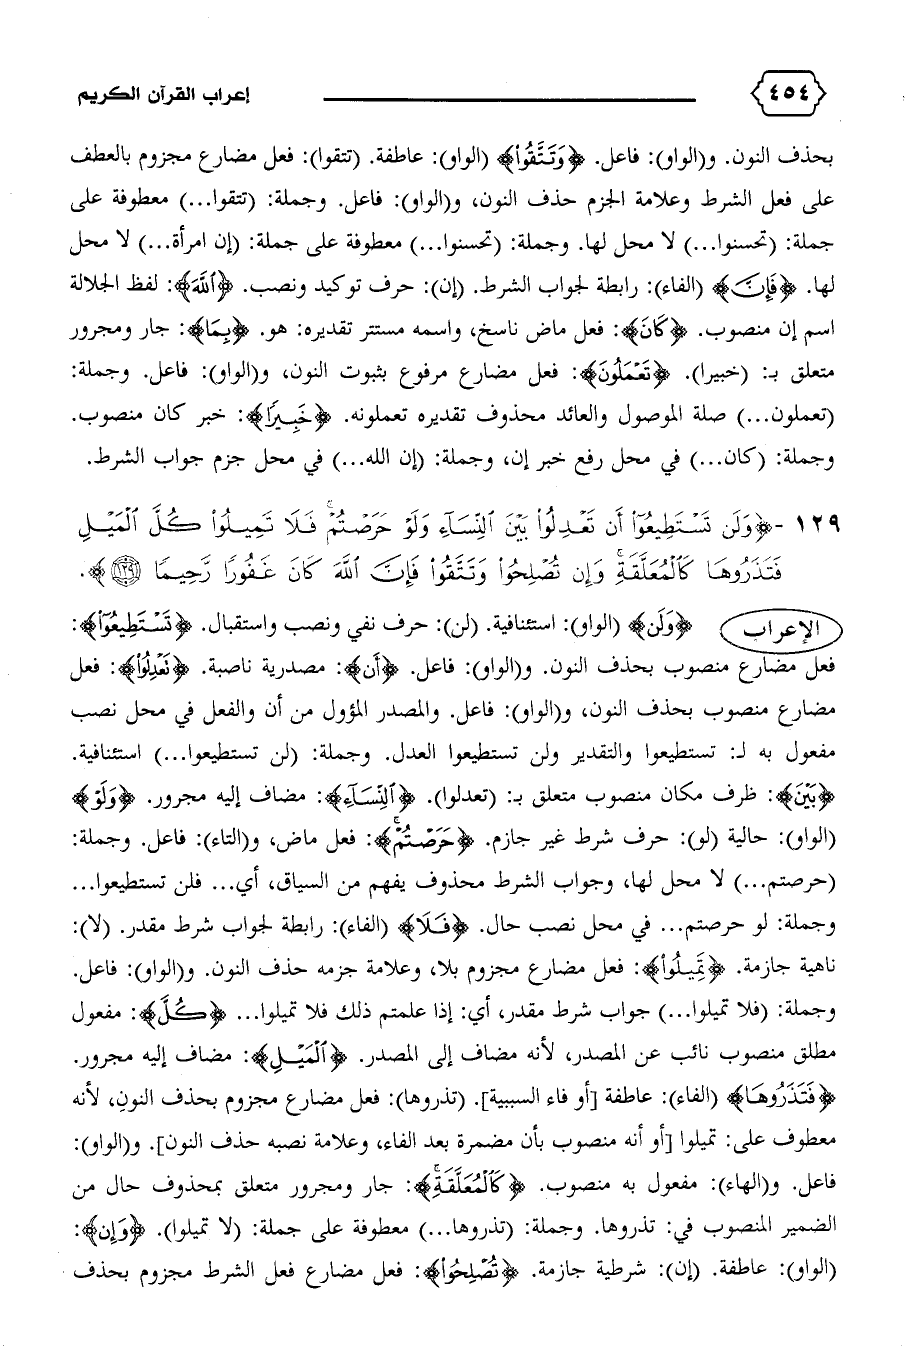 ٤٥٤ إعراب القرآن الكريم
بحذف النون. و(الواو): فاعل. ﴿وَتَتَّقُوا۟﴾ (الواو): عاطفة. (تتقوا): فعل مضارع مجزوم بالعطف
على فعل الشرط وعلامة الجزم حذف النون، و(الواو): فاعل. وجملة: (تتقوا...) معطوفة على
جملة: (تحسنوا...) لا محل لها. وجملة: (تحسنوا...) معطوفة على جملة: (إن امرأة...) لا محل
لها. ﴿فَإِنَّ﴾ (الفاء): رابطة لجواب الشرط. (إن): حرف توكيد ونصب. ﴿ٱللَّهَ﴾: لفظ الجلالة
اسم إن منصوب. ﴿كَانَ﴾: فعل ماض ناسخ، واسمه مستتر تقديره: هو. ﴿بِمَا﴾: جار ومجرور
متعلق بـ: (خبيرا). ﴿تَعْمَلُونَ﴾: فعل مضارع مرفوع بثبوت النون، و(الواو): فاعل. وجملة:
(تعملون...) صلة الموصول والعائد محذوف تقديره تعملونه. ﴿خَبِيرًا﴾: خبر كان منصوب.
وجملة: (كان...) في محل رفع خبر إن، وجملة: (إن الله...) في محل جزم جواب الشرط.
١٢٩ - ﴿وَلَن تَسْتَطِيعُوٓا۟ أَن تَعْدِلُوا۟ بَيْنَ ٱلنِّسَآءِ وَلَوْ حَرَصْتُمْ ۖ فَلَا تَمِيلُوا۟ كُلَّ ٱلْمَيْلِ
فَتَذَرُوهَا كَٱلْمُعَلَّقَةِ ۚ وَإِن تُصْلِحُوا۟ وَتَتَّقُوا۟ فَإِنَّ ٱللَّهَ كَانَ غَفُورًا رَّحِيمًا ١٢٩﴾.
الإعراب ﴿وَلَن﴾ (الواو): استئنافية. (لن): حرف نفي ونصب واستقبال. ﴿تَسْتَطِيعُوٓا۟﴾:
فعل مضارع منصوب بحذف النون. و(الواو): فاعل. ﴿أَن﴾: مصدرية ناصبة. ﴿تَعْدِلُوا۟﴾: فعل
مضارع منصوب بحذف النون، و(الواو): فاعل. والمصدر المؤول من أن والفعل في محل نصب
مفعول به لـ: تستطيعوا والتقدير ولن تستطيعوا العدل. وجملة: (لن تستطيعوا...) استئنافية.
﴿بَيْنَ﴾: ظرف مكان منصوب متعلق بـ: (تعدلوا). ﴿ٱلنِّسَآءِ﴾: مضاف إليه مجرور. ﴿وَلَوْ﴾
(الواو): حالية (لو): حرف شرط غير جازم. ﴿حَرَصْتُمْ ۖ﴾: فعل ماض، و(التاء): فاعل. وجملة:
(حرصتم...) لا محل لها، وجواب الشرط محذوف يفهم من السياق، أي... فلن تستطيعوا...
وجملة: لو حرصتم... في محل نصب حال. ﴿فَلَا﴾ (الفاء): رابطة لجواب شرط مقدر. (لا):
ناهية جازمة. ﴿تَمِيلُوا۟﴾: فعل مضارع مجزوم بلا، وعلامة جزمه حذف النون. و(الواو): فاعل.
وجملة: (فلا تميلوا...) جواب شرط مقدر، أي: إذا علمتم ذلك فلا تميلوا... ﴿كُلَّ﴾: مفعول
مطلق منصوب نائب عن المصدر، لأنه مضاف إلى المصدر. ﴿ٱلْمَيْلِ﴾: مضاف إليه مجرور.
﴿فَتَذَرُوهَا﴾ (الفاء): عاطفة [أو فاء السببية]. (تذروها): فعل مضارع مجزوم بحذف النون، لأنه
معطوف على: تميلوا [أو أنه منصوب بأن مضمرة بعد الفاء، وعلامة نصبه حذف النون]. و(الواو):
فاعل. و(الهاء): مفعول به منصوب. ﴿كَٱلْمُعَلَّقَةِ ۚ﴾: جار ومجرور متعلق بمحذوف حال من
الضمير المنصوب في: تذروها. وجملة: (تذروها...) معطوفة على جملة: (لا تميلوا). ﴿وَإِن﴾:
(الواو): عاطفة. (إن): شرطية جازمة. ﴿تُصْلِحُوا۟﴾: فعل مضارع فعل الشرط مجزوم بحذف